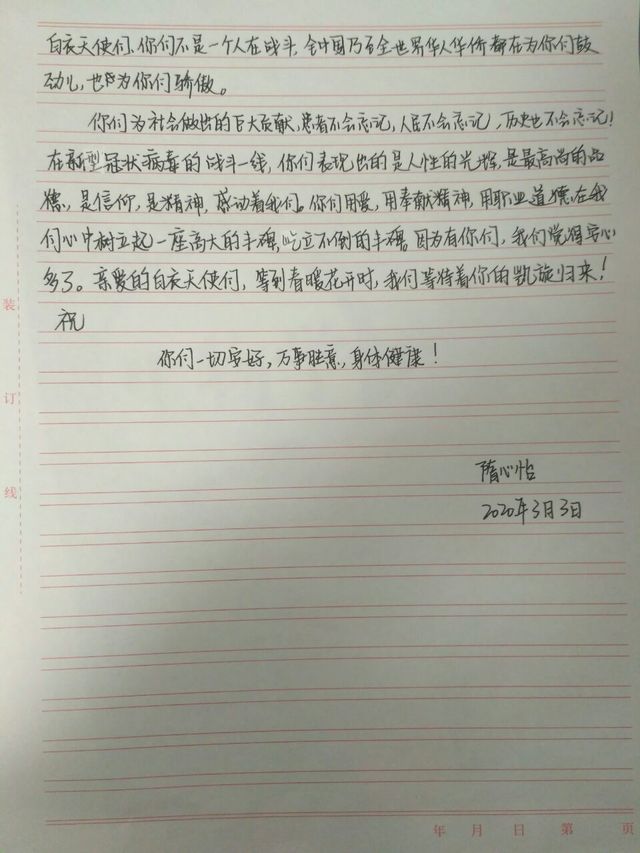 白衣天使们，你们不是一个人在战斗，全中国乃至全世界华人华侨都在为你们鼓
劲儿，也因为你们骄傲。
你们为社会做出的巨大贡献，患者不会忘记，人民不会忘记，历史也不会忘记！
在新型冠状病毒的战斗一线，你们表现出的是人性的光辉，是最高尚的品
德，是信仰，是精神，感动着我们。你们用爱，用奉献精神，用职业道德，在我
们心中树立起一座高大的丰碑，屹立不倒的丰碑。因为有你们，我们觉得安心
多了。亲爱的白衣天使们，等到春暖花开时，我们等待着你的凯旋归来！
祝
你们一切安好，万事胜意，身体健康！
隋心怡
2020年3月3日
装
订
线
年 月 日 第 页